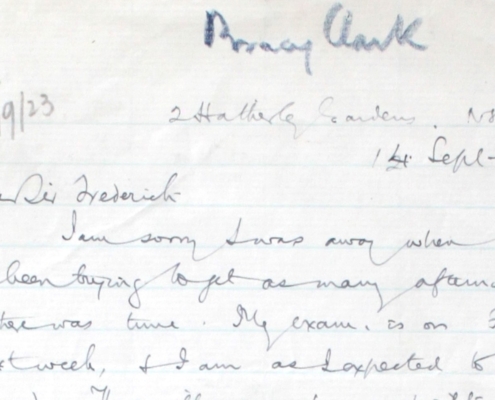 Clark
/9/23
2 Hatherley Gardens. N8
14 Sept-
Sir Frederick
I am sorry I was away when
been trying to get as many
there was time. My exam. is on
week, & I am as I expected to